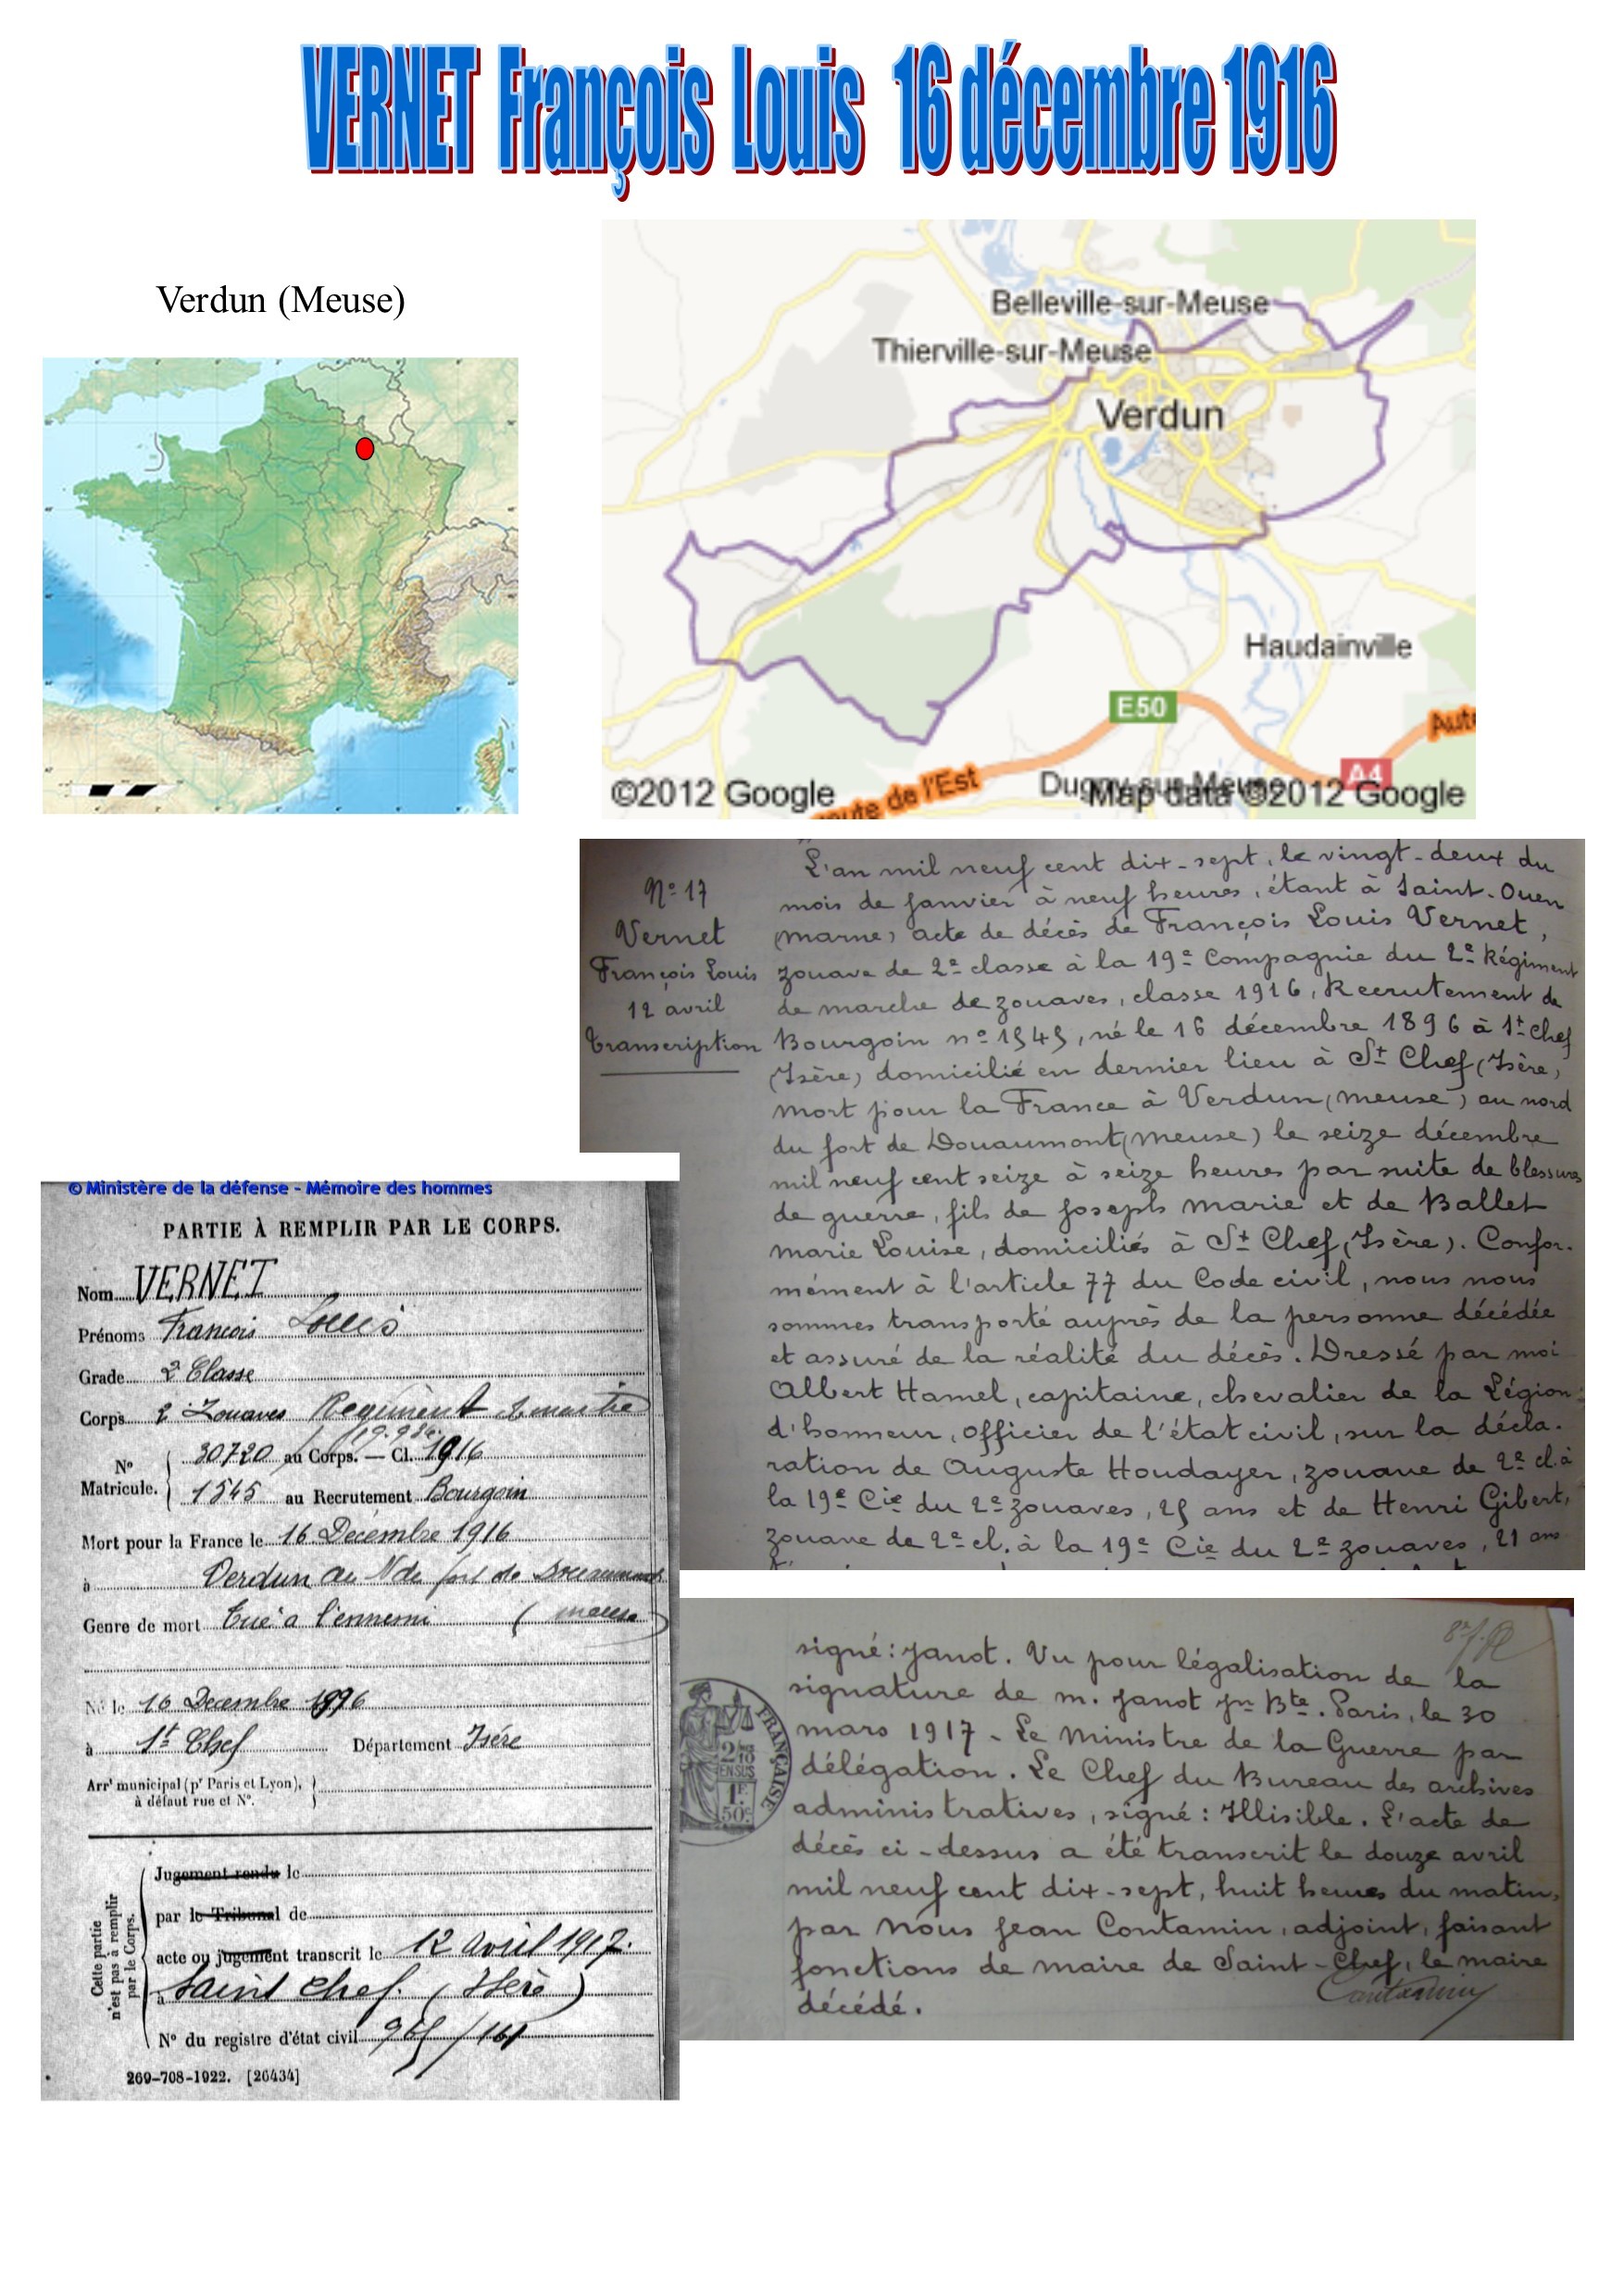 VERNET François Louis 16 décembre 1916
Verdun (Meuse)
Belleville-sur-Meuse
Thierville-sur-Meuse
Verdun
Haudainville
E50
A4
Dugny-sur-Meuse
©2012 Google
Map data ©2012 Google
L'an mil neuf cent dix-sept, le vingt-deux du
mois de janvier à neuf heures, étant à Saint-Ouen
(Marne) acte de décès de François Louis Vernet,
zouave de 2e classe à la 19e Compagnie du 2e Régiment
de marche de zouaves, classe 1916, Recrutement de
Bourgoin no 1545, né le 16 décembre 1896 à St Chef
(Isère) domicilié en dernier lieu à St Chef (Isère,
mort pour la France à Verdun (Meuse) au nord
du fort de Douaumont (Meuse) le seize décembre
mil neuf cent seize à seize heures par suite de blessures
de guerre, fils de Joseph Marie et de Ballet
Marie Louise, domiciliés à St Chef (Isère). Confor-
mément à l'article 77 du Code civil, nous nous
sommes transporté auprès de la personne décédée
et assuré de la réalité du décès. Dressé par moi
Albert Hamel, capitaine, chevalier de la Légion
d'honneur, officier de l'état civil, sur la décla-
ration de Auguste Houdayer, zouave de 2e cl. à
la 19e Cie du 2e zouaves, 25 ans et de Henri Gibert,
zouave de 2e cl. à la 19e Cie du 2e zouaves, 21 ans
No 17
Vernet
François Louis
12 avril
transcription
© Ministère de la défense - Mémoire des hommes
PARTIE À REMPLIR PAR LE CORPS.
Nom VERNET
Prénoms François Louis
Grade 2e Classe
Corps 2 Zouaves Régiment
No Matricule. 30720 au Corps. — Cl. 1916
1545 au Recrutement Bourgoin
Mort pour la France le 16 Décembre 1916
à Verdun au N du fort de Douaumont
Genre de mort Tué à l'ennemi (Meuse)
Né le 16 Decembre 1896
à St Chef Département Isère
Arrt municipal (pr Paris et Lyon),
à défaut rue et No.
Cette partie
n'est pas à remplir
par le Corps.
Jugement rendu le
par le Tribunal de
acte ou jugement transcrit le 12 avril 1917.
à Saint Chef. (Isère)
No du registre d'état civil
269-708-1922. [26434]
signé: Janot. Vu pour légalisation de la
signature de M. Janot Jn Bte. Paris, le 30
mars 1917 - Le Ministre de la Guerre par
délégation. Le Chef du Bureau des archives
administratives, signé: Illisible. L'acte de
décès ci-dessus a été transcrit le douze avril
mil neuf cent dix-sept, huit heures du matin,
par Nous Jean Contamin, adjoint, faisant
fonctions de maire de Saint-Chef, le maire
décédé.
Contamin
FRANÇAISE